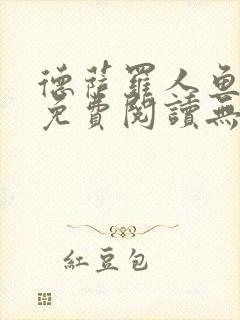 德薩羅人魚
免費閱讀無
紅豆包